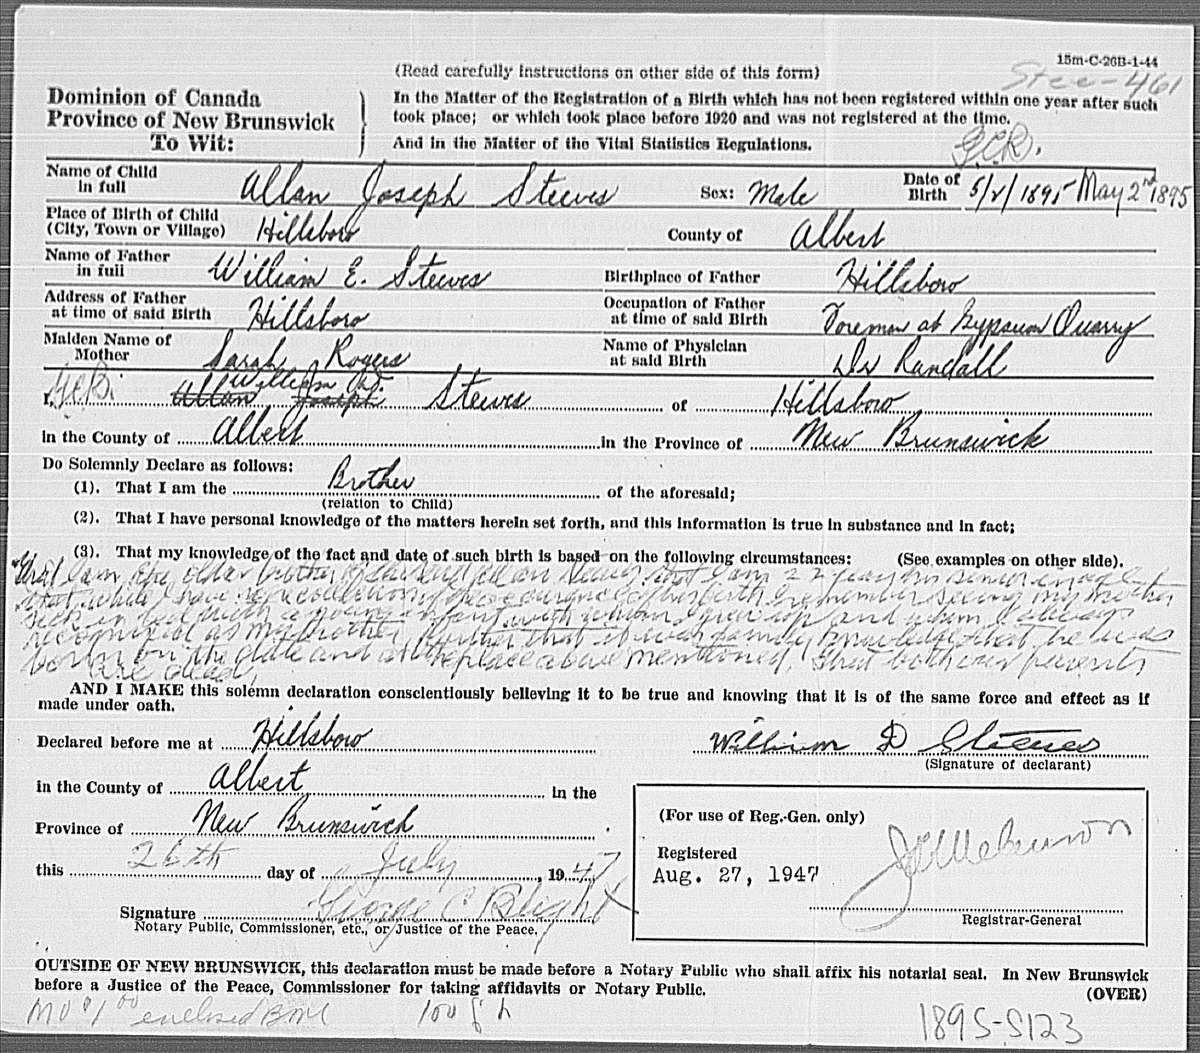 15m-C-26B-1-44
(Read carefully instructions on other side of this form)
Stee-461
Dominion of Canada
Province of New Brunswick
To Wit:
In the Matter of the Registration of a Birth which has not been registered within one year after such
took place; or which took place before 1920 and was not registered at the time.
And in the Matter of the Vital Statistics Regulations.
Name of Child in full Allan Joseph Steeves Sex: Male Date of Birth 5/2/1895 May 2nd 1895
Place of Birth of Child (City, Town or Village) Hillsboro County of Albert
Name of Father in full William E. Steeves Birthplace of Father Hillsboro
Address of Father at time of said Birth Hillsboro Occupation of Father at time of said Birth Foreman at Gypsum Quarry
Maiden Name of Mother Sarah Rogers Name of Physician at said Birth Dr Randall
William D.
I, Allan Joseph Steeves of Hillsboro
in the County of Albert in the Province of New Brunswick
Do Solemnly Declare as follows:
(1). That I am the Brother of the aforesaid;
(relation to Child)
(2). That I have personal knowledge of the matters herein set forth, and this information is true in substance and in fact;
(3). That my knowledge of the fact and date of such birth is based on the following circumstances: (See examples on other side).
That I am the older brother of the said Allan Steeves that I am years his senior
that while I have no recollection of the occurrence of the birth I remember seeing my mother
sick in bed with a young infant with whom I grew up and whom I always
recognized as my brother, further that it was family knowledge that he was
born on the date and at the place above mentioned. that both our parents
are dead.
AND I MAKE this solemn declaration conscientiously believing it to be true and knowing that it is of the same force and effect as if
made under oath.
Declared before me at Hillsboro
William D Steeves
(Signature of declarant)
in the County of Albert in the
Province of New Brunswick
this 26th day of July, 1947
Signature George C Blight
Notary Public, Commissioner, etc., or Justice of the Peace.
(For use of Reg.-Gen. only)
Registered
Aug. 27, 1947
Registrar-General
OUTSIDE OF NEW BRUNSWICK, this declaration must be made before a Notary Public who shall affix his notarial seal. In New Brunswick
before a Justice of the Peace, Commissioner for taking affidavits or Notary Public.
(OVER)
MO $1.00 enclosed
1895-S123